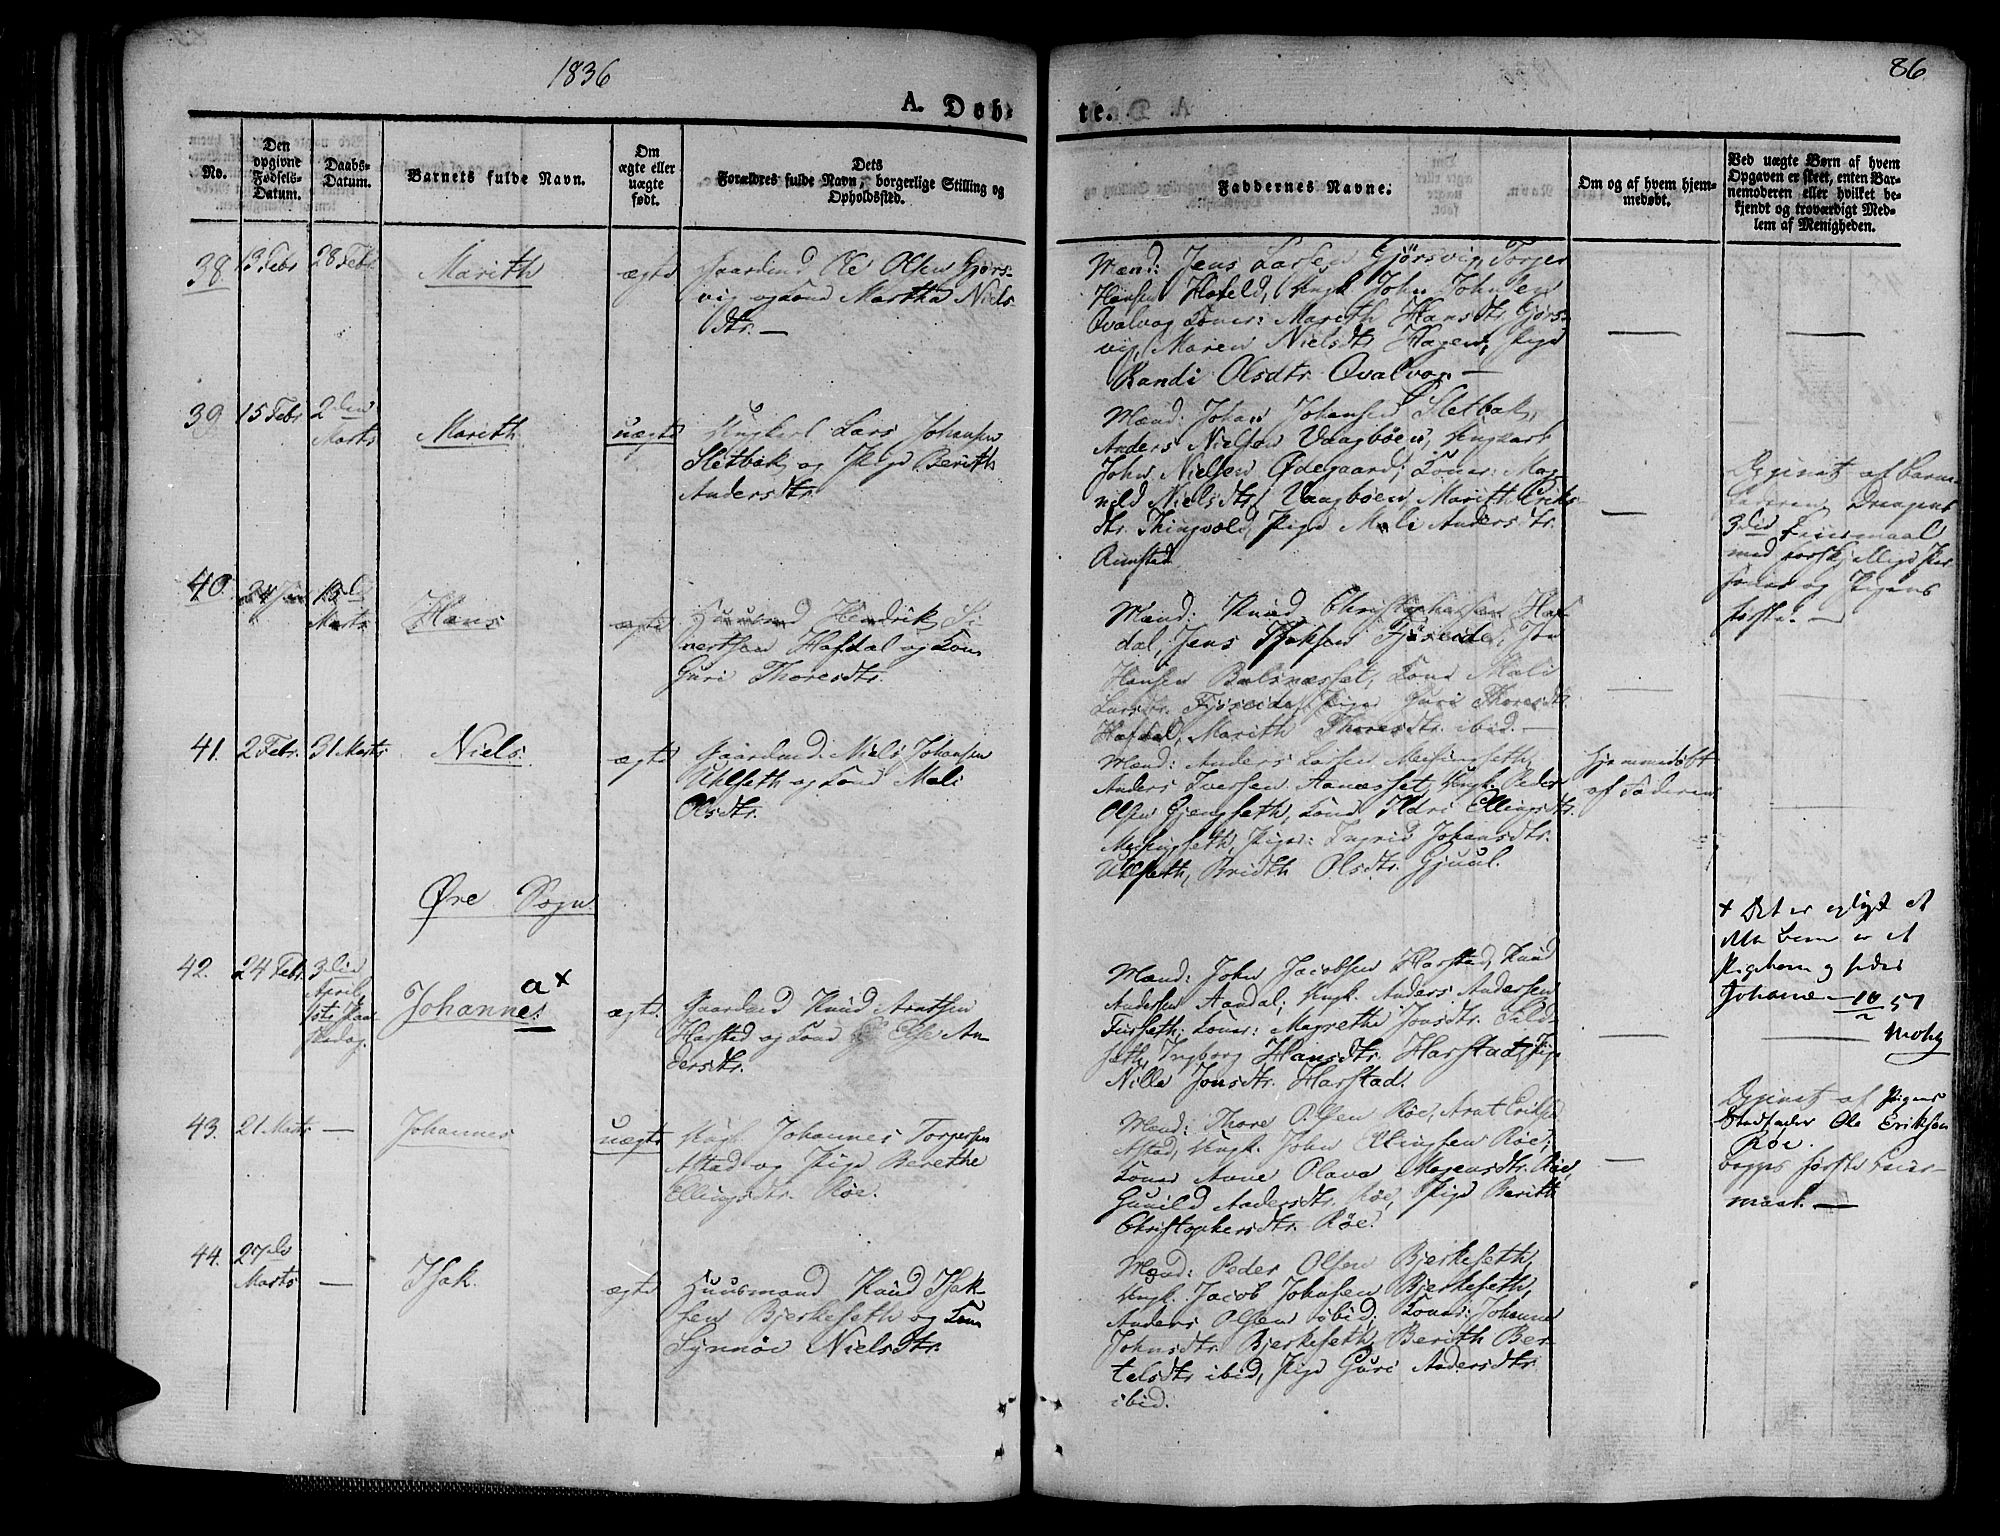 1836
86
A. Døb-
te.
No.
Den
opgivne
Fødsels-
Datum.
Daabs-
Datum.
Barnets fulde Navn.
Om
ægte eller
uægte
født.
Dets
Forældres fulde Navn, borgerlige Stilling og
Opholdssted.
Faddernes Navne.
Om og af hvem hjem-
medøbt.
Ved uægte Børn af hvem
Opgaven er skeet, enten Bar-
nemoderen eller hvilket be-
kjendt og troværdigt Med-
lem af Menigheden.
38
13 Febr
28 Febr
Marith
ægte
Gaardmd Ole Olsen Gjørs-
vig og Kone Martha Niels
dtr. —
Mænd: Jens Larsen Gjørsvig, Torger
Hansen Hafeld, Ungk John Johnsen
Qvalvog Koner: Marith Hansdtr Gjørs-
vig, Maren Nielsdtr Hagen, Pige
Randi Olsdtr. Qvalvog. —
39
15 Febr
2den
Marts
Marith
uægte
Ungkarl Lars Johansen
Sletbak og Pige Berith
Andersdtr.
Mænd: Johan Johansen Sletbak,
Anders Nielsen Vaagbøen, Ungkarl
John Nielsen Ødegaard; Koner: Mag-
nild Nielsdtr Vaagbøen, Marith Eriks-
dtr. Thingvold, Pige Mali Andersdtr.
Rimstad
Opgivet af Barne-
faderen, Drengens
3die Leiermaal
med forskjellige Per-
soner og Pigens
første. —
40.
24 Jan
13de
Marts
Hans
ægte
Huusmd Hendrik Si-
vertsen Hafdal og Kone
Guri Thoresdtr.
Mænd: Knud Christophersen Haf-
dal, Jens Isaksen Fjøreide, Jon
Hansen Bolsnæsset, Kone Mali
Larsdtr. Fjøreide, Piger Guri Thoresdtr
Hafdal, Marith Thoresdtr. ibid. —
41.
2 Febr.
31 Marts
Niels.
ægte
Gaardmd. Niels Johansen
Uhlseth og Kone Mali
Olsdtr.
Mænd: Anders Larsen Meisingseth,
Anders Iversen Aanæsset, Ungk. Peder
Olsen Gjengseth, Kone Ildri Ellingsdtr.
Meisingseth, Piger: Ingrid Johansdtr.
Uhlseth, Bridth Olsdtr. Gjuul.
Hjemmedøbt
af Faderen
Øre Sogn
42.
24 Febr.
3die
April
1ste Paa-
skedag.
a x
Johannes
ægte
Gaardmd Knud Arntsen
Harstad og Kone Else An-
dersdtr.
Mænd: John Jacobsen Harstad, Knud
Andersen Aandal; Ungk. Anders Andersen
Furseth; Koner: Magrethe Jonsdtr. Sild-
seth, Ingborg Hansdtr. Harstad, Pige
Nille Jonsdtr. Harstad.
x Det er oplyst at
dette Barn er et
Pigebarn og heder
Johane — 10/2 57
Mohg
43.
21 Marts
—
Johannes
uægte
Ungk. Johannes Torgersen
Astad og Pige Berethe
Ellingsdtr. Røe.
Mænd: Thore Olsen Røe, Arnt Eriksen
Astad, Ungk. John Ellingsen Røe;
Koner Anne Olava Mogensdtr. Røe,
Gunild Andersdtr. Røe, Pige Berith
Christophersdtr. Røe.
Opgivet af Pigens
Stedfader Ole Eriksen
Røe.
begges første Leier-
maal. —
44.
27de
Marts
—
Isak.
ægte
Huusmand Knud Isak-
sen Bjerkeseth og Kone
Synnøv Nielsdtr.
Mænd: Peder Olsen Bjerkeseth,
Ungk. Jacob Johnsen Bjerkeseth,
Anders Olsen ibid; Koner: Johanne
Johnsdtr. Bjerkeseth, Berith Ber-
telsdtr ibid, Pige Guri Andersdtr.
ibid.